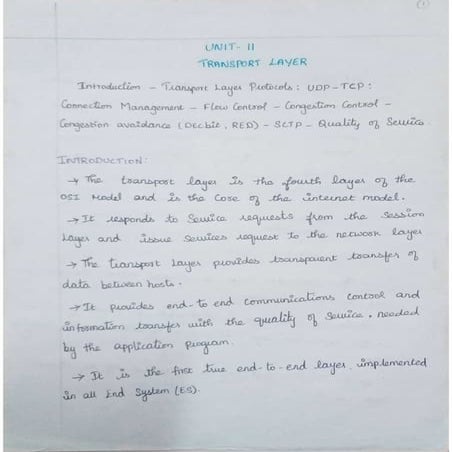 1
UNIT- II
TRANSPORT LAYER
Introduction - Transport Layer Protocols: UDP-TCP:
Connection Management - Flow Control - Congestion Control -
Congestion avoidance (DECbit, RED) - SCTP - Quality of Service.
INTRODUCTION:
→ The transport layer is the fourth layer of the
OSI Model and is the core of the internet model.
→ It responds to Service requests from the Session
Layer and issue Services request to the network layer
→ The Transport Layer provides transparent transfer of
data between hosts.
→ It provides end-to end communications control and
information transfer with the quality of Service. needed
by the application program.
→ It is the first true end-to-end layer, implemented
in all End System (ES).